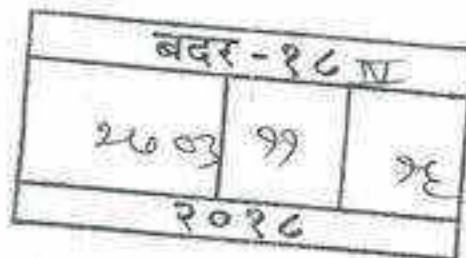 बदर -१८ IV
२७०३ ११ १६
२०१८